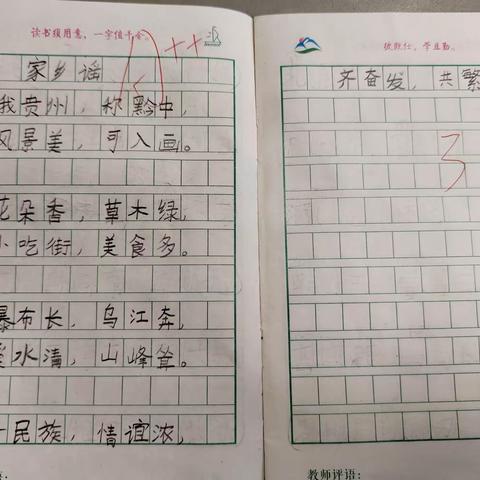 读书须用意,一字值千金。
家乡谣
我贵州,称黔中,
风景美,可入画。
花朵香,草木绿,
小吃街,美食多。
瀑布长,乌江奔,
水清,山峰耸。
民族,情谊浓,
彼既仕,学且勤。
齐奋发,共繁
3
教师评语: